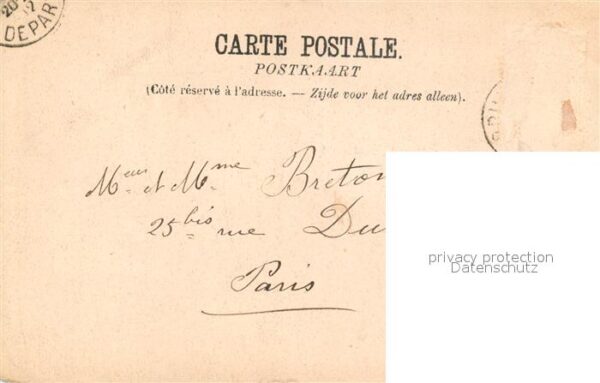 20 17
DEPAR
CARTE POSTALE.
POSTKAART
(Côté réservé à l'adresse. — Zijde voor het adres alleen).
Meur et Mme Breton
25 bis rue Du
Paris
privacy protection
Datenschutz